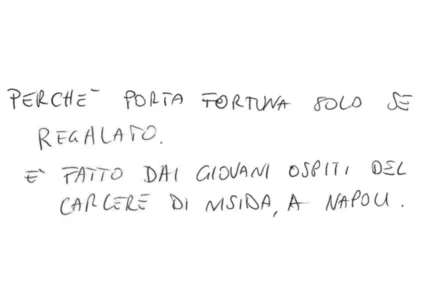 PERCHE' PORTA FORTUNA SOLO SE
REGALATO.
E' FATTO DAI GIOVANI OSPITI DEL
CARCERE DI NISIDA, A NAPOLI.